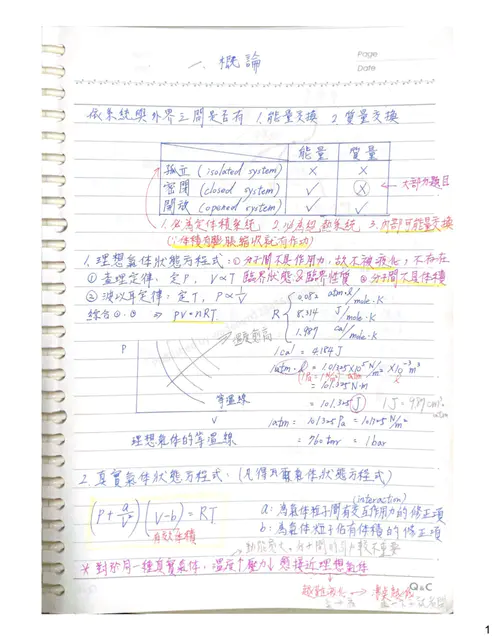 Page
Date
一. 概論
依系統與外界之間是否有 1.能量交換 2.質量交換
能量 質量
孤立 (isolated system) × ×
密閉 (closed system) ✓ × ← 大部分題目
開放 (opened system) ✓ ✓
1.必為定體積系統 2.必為絕熱系統 3.內部可能量交換
(∵體積膨脹縮收就有作功)
1. 理想氣體狀態方程式: ①分子間不具作用力, 故不被液化, 不存在
①查理定律, 定P, V∝T 臨界狀態&臨界性質 ②分子間不具體積
②波以耳定律, 定T, P∝1/V
綜合①.② ⇒ PV=nRT
R
0.082 atm·l/mole·K
8.314 J/mole·K
1.987 cal/mole·K
P
溫度愈高
等溫線
V
理想氣體的等溫線
1cal = 4.184 J
= 101.325 N·m
= 101.325 J
1atm = 101325 Pa = 101325 N/m²
= 76 = 1 bar
2. 真實氣體狀態方程式. (凡得瓦爾氣體狀態方程式)
(P + a/V²)(V-b) = RT
有效體積
(interaction)
a: 為氣體粒子間有交互作用力的修正項
b: 為氣體粒子佔有體積的修正項
* 對於同一種真實氣體, 溫度↑壓力↓愈接近理想氣體
Q&C
1